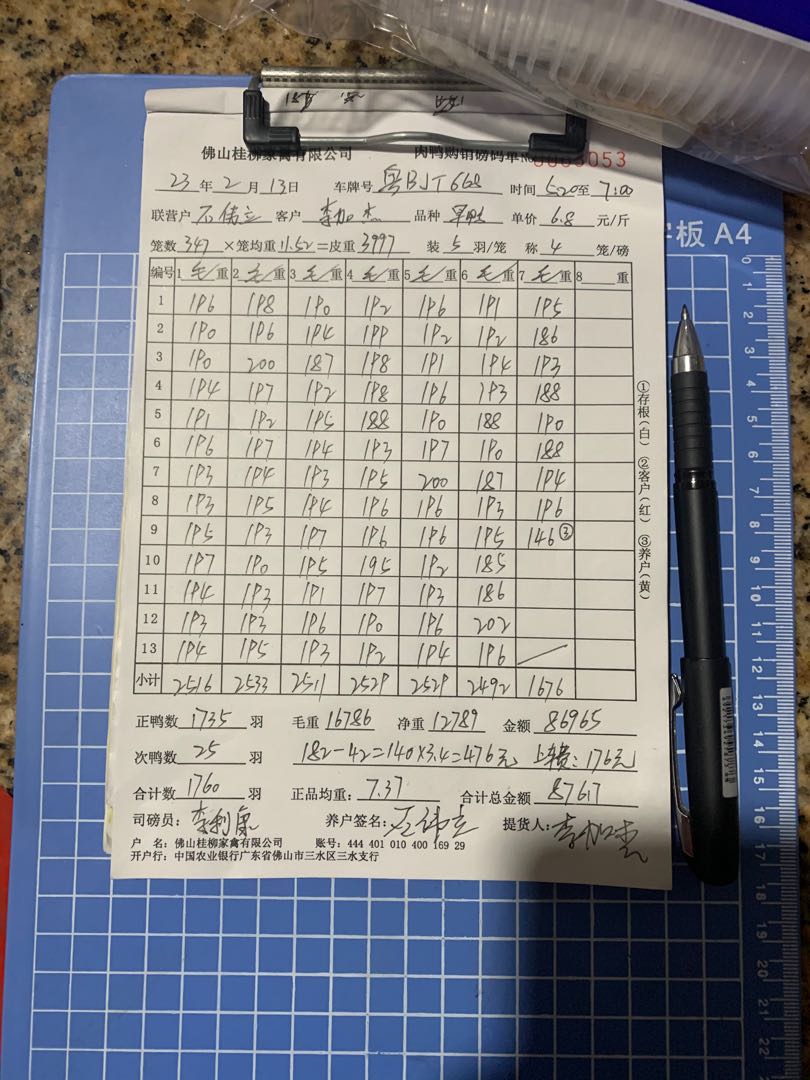 佛山桂柳家禽有限公司 肉鸭购销磅码单 №0003053
23 年 2 月 13日 车牌号 粤BJT668 时间 5.20至 7:00
联营户 石伟立 客户 李加杰 品种 单价 6.8 元/斤
笼数 347 ×笼均重 11.52 =皮重 3997 装 5 羽/笼 称 4 笼/磅
编号 1 毛 重 2 毛 重 3 毛 重 4 毛 重 5 毛 重 6 毛 重 7 毛 重 8 重
1 196 198 190 192 196 191 195
2 190 196 194 199 192 192 186
3 190 200 187 198 191 194 193
4 194 197 192 198 196 193 188
5 191 192 195 188 190 188 190
6 196 197 194 193 197 190 188
7 193 194 193 195 200 187 194
8 193 195 194 196 196 193 196
9 195 193 197 196 196 195 146③
10 197 190 195 195 192 185
11 194 193 191 197 193 186
12 193 193 196 190 196 202
13 194 195 193 192 194 196
小计 2516 2533 2511 2529 2529 2492 1676
正鸭数 1735 羽 毛重 16786 净重 12789 金额 86965
次鸭数 25 羽 182-42=140×3.4=476元 上车费:176元
合计数 1760 羽 正品均重: 7.37 合计总金额 87617
司磅员: 李利康 养户签名: 石伟立 提货人: 李加杰
户 名: 佛山桂柳家禽有限公司 账号: 444 401 010 400 169 29
开户行: 中国农业银行广东省佛山市三水区三水支行
①存根(白) ②客户(红) ③养户(黄)
字板 A4
0
1
2
3
4
5
6
7
8
9
10
11
12
13
14
15
16
17
18
19
20
21
22